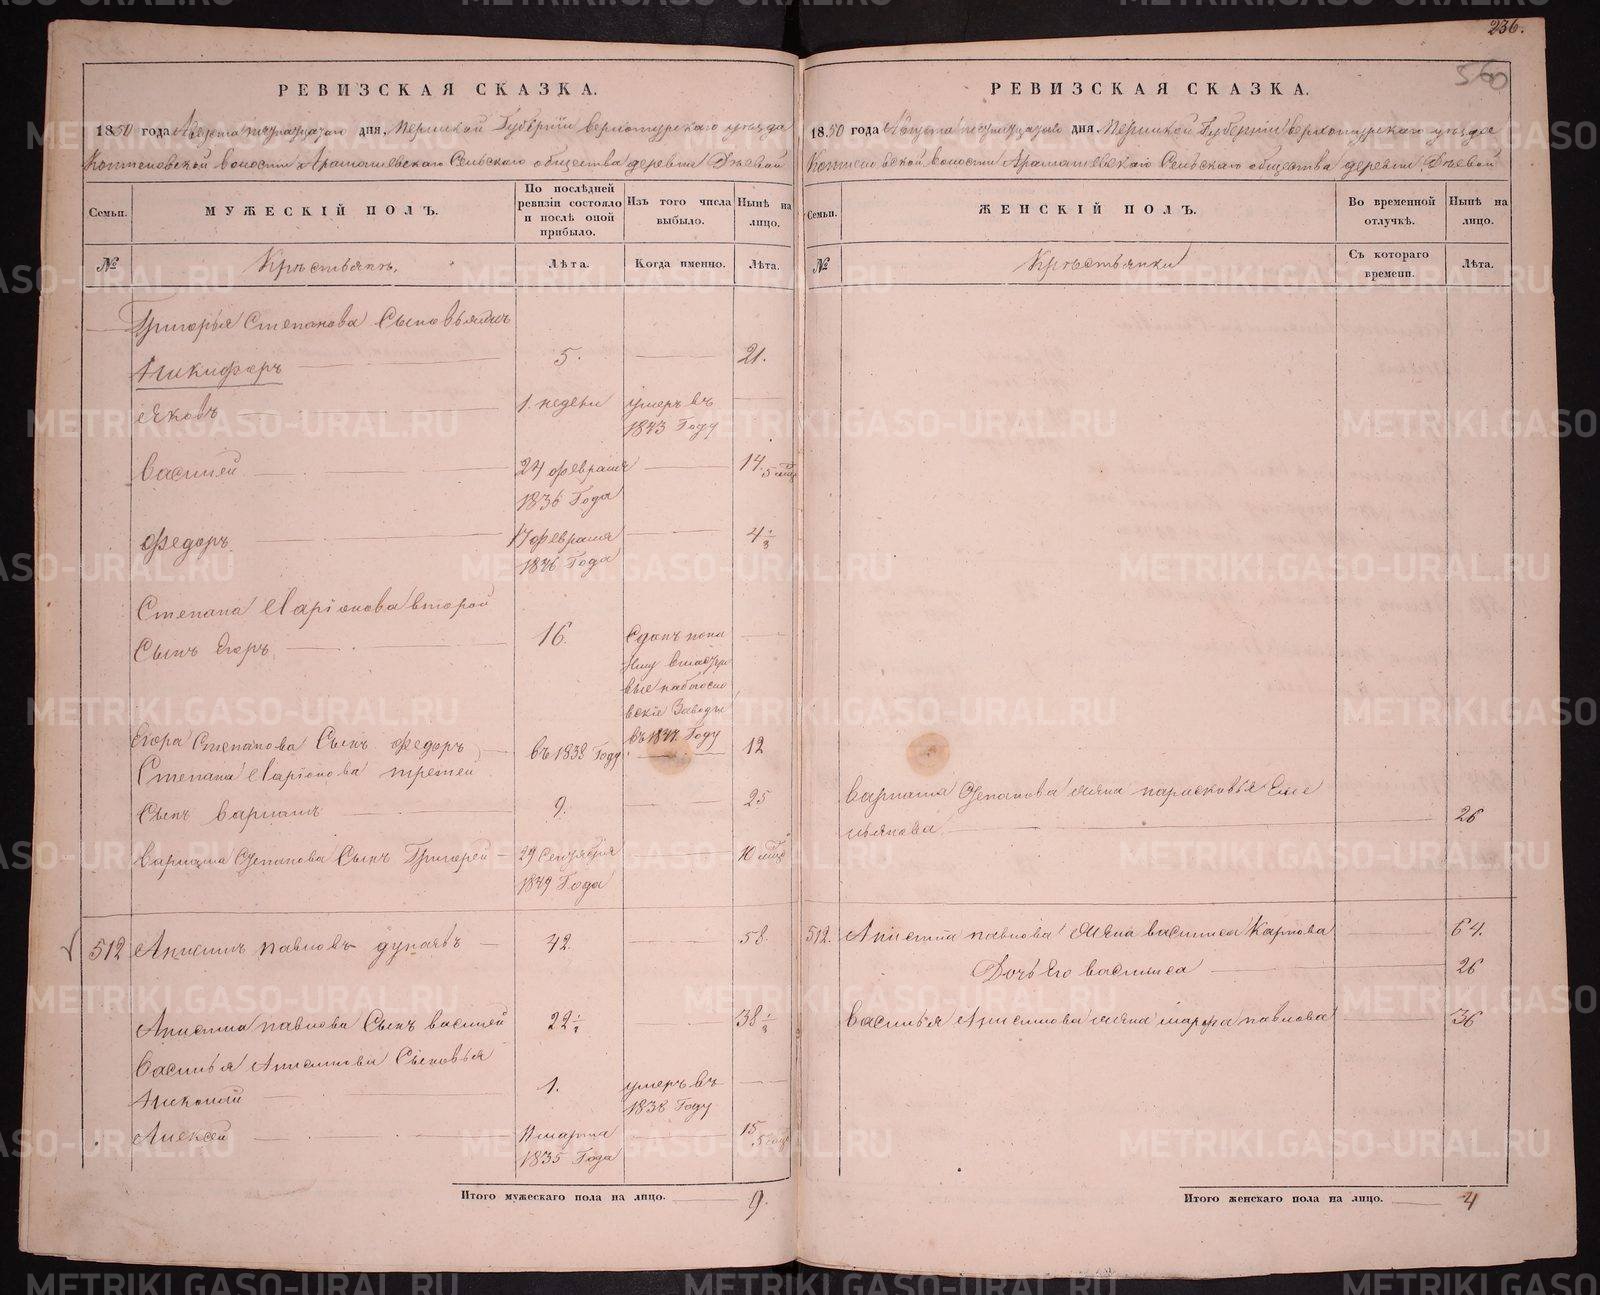 236.
560
РЕВИЗСКАЯ СКАЗКА.
1850 года Августа дня, Пермской Губернiи верхотурскаго уѣзда
волости Арамашевскаго Сельскаго общества деревни
Семьи.
МУЖЕСКIЙ ПОЛЪ.
По послѣдней ревизiи состояло и послѣ оной прибыло.
Изъ того числа выбыло.
Нынѣ на лицо.
№
Крестьянъ,
Лѣта.
Когда именно.
Лѣта.
Григорья Степанова Сыновья
Никифоръ 5. 21.
Яковъ 1. недели умеръ въ
1843 Году
Василей 24 февраля 14. 5 мѣс
1836 Года
Федоръ 17 февраля 4 1/3
1846 Года
Степана Ларiонова второй
Сынъ Егоръ 16. Сданъ
Заводы
въ 1844 Году
Егора Степанова Сынъ Федоръ въ 1838 Году 12
Степана Ларiонова третей
Сынъ Варламъ 9. 25
Варлама Степанова Сынъ Григорей 29 Сентября 10 мѣс
1849 Года
512 Анисимъ павловъ дунаевъ 42. 58.
Анисима павлова Сынъ василей 22 1/2 38 1/3
Василья Анисимова Сыновья
1. умеръ въ
1838 Году
Алексей 11 марта 15
1835 Года
Итого мужескаго пола на лицо. 9.
РЕВИЗСКАЯ СКАЗКА.
1850 года Августа дня, Пермской Губернiи верхотурскаго уѣзда
волости Арамашевскаго Сельскаго общества деревни
Семьи.
ЖЕНСКIЙ ПОЛЪ.
Во временной отлучкѣ.
Нынѣ на лицо.
№
Крестьянки
Съ котораго времени.
Лѣта.
Варлама Степанова жена парасковья Еме
льянова 26
512. Анисима павлова жена василиса Карпова 64.
Дочь Его василиса 26
Василья Анисимова жена марфа павлова 36
Итого женскаго пола на лицо. 4
METRIKI.GASO-URAL.RU